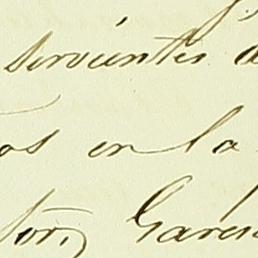 sirvientes
os en la
tor, Garcí